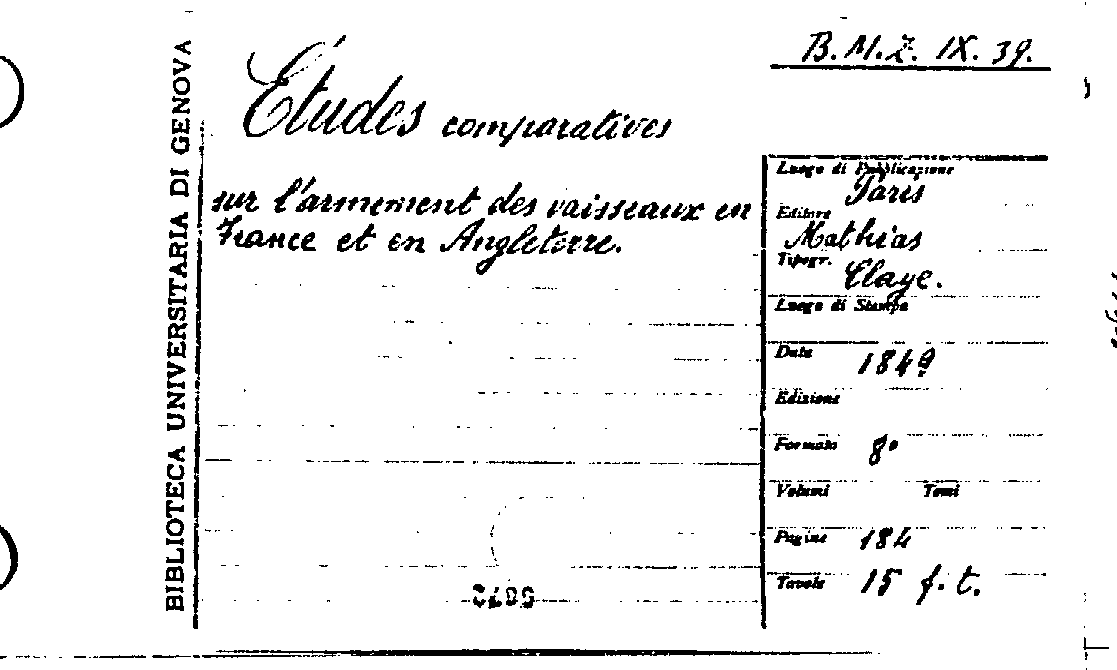 BIBLIOTECA UNIVERSITARIA DI GENOVA
B.M.Z. IX. 39.
Études comparatives
sur l'armement des vaisseaux en
France et en Angleterre.
Luogo di Pubblicazione
Paris
Editore
Mathias
Tipogr.
Claye.
Luogo di Stampa
Data 1849
Edizione
Formato 8°
Volumi Tomi
Pagine 184
Tavole 15 f. t.